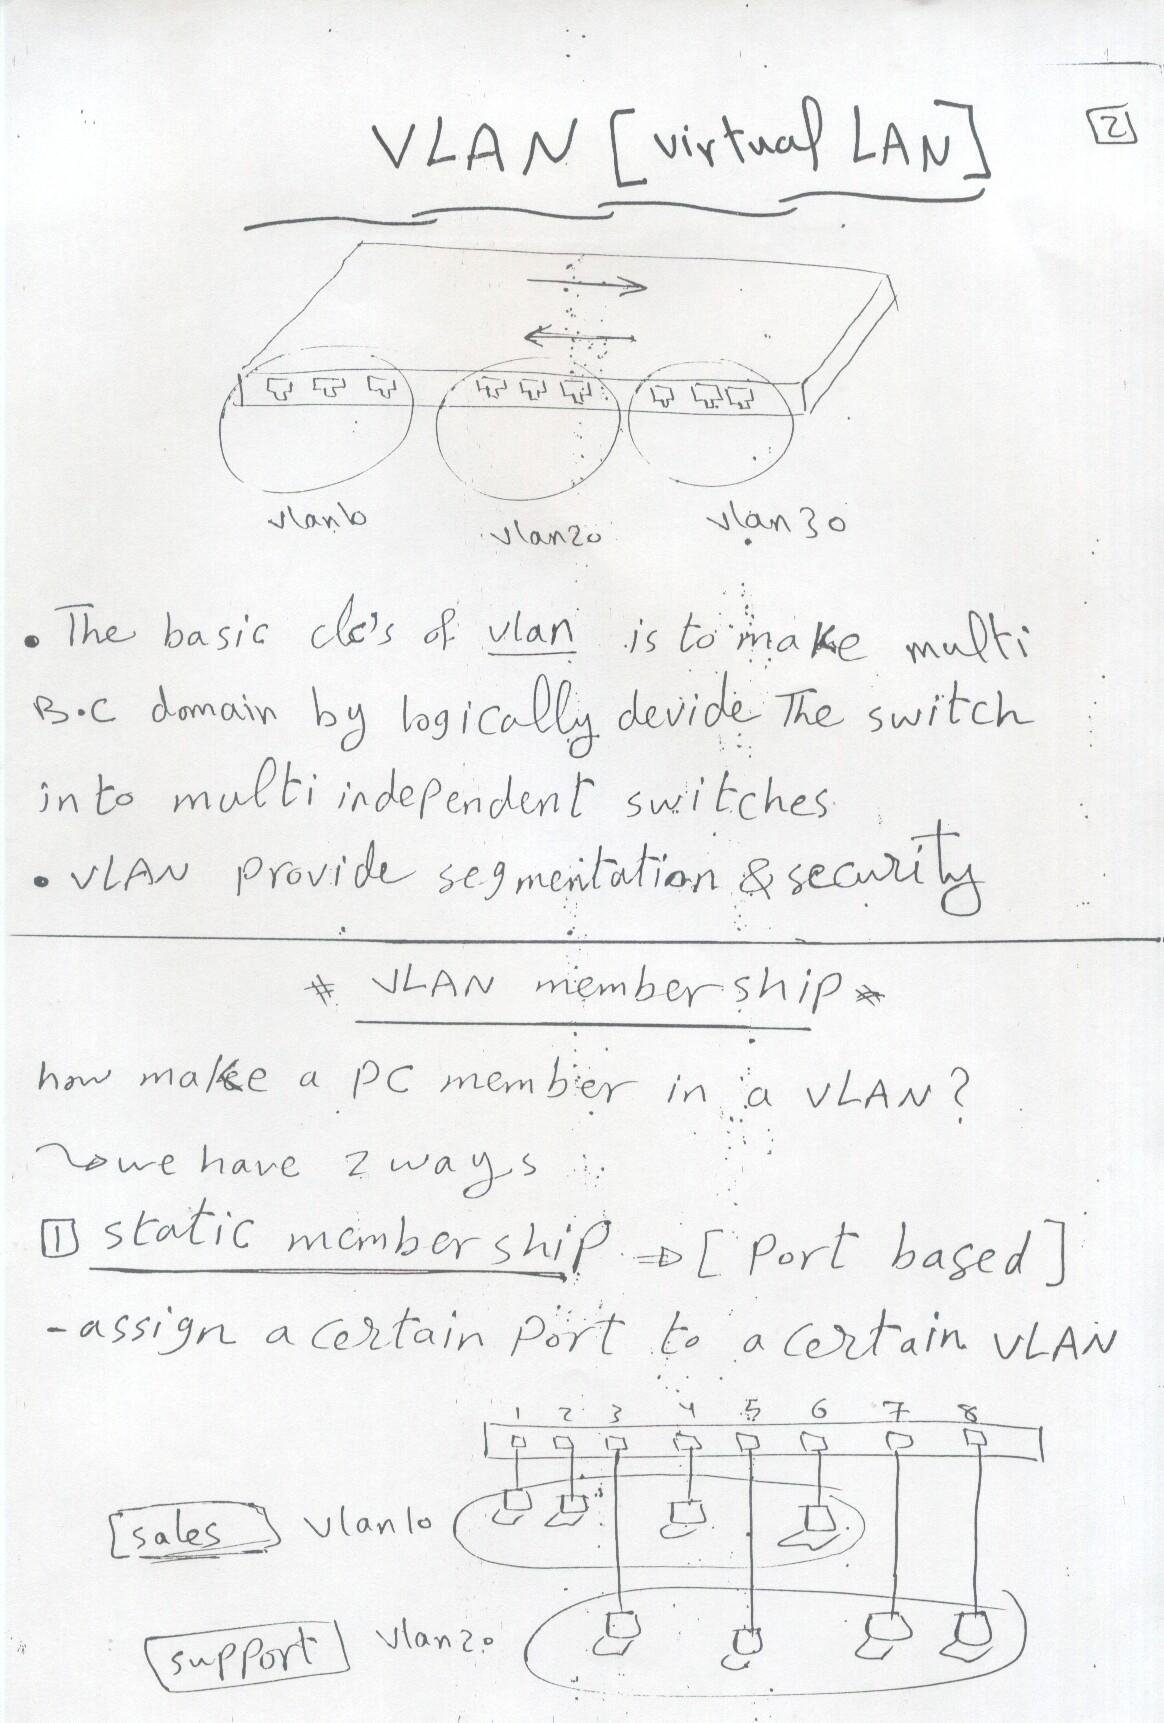 VLAN [virtual LAN]
2
vlan10
vlan20
vlan30
• The basic of vlan is to make multi
B.C domain by logically devide The switch
into multi independent switches
• VLAN provide segmentation & security
* VLAN membership *
how make a PC member in a VLAN?
we have 2 ways
1 static membership ⇒ [Port based]
- assign a certain Port to a certain VLAN
1 2 3 4 5 6 7 8
[sales] vlan10
support vlan20